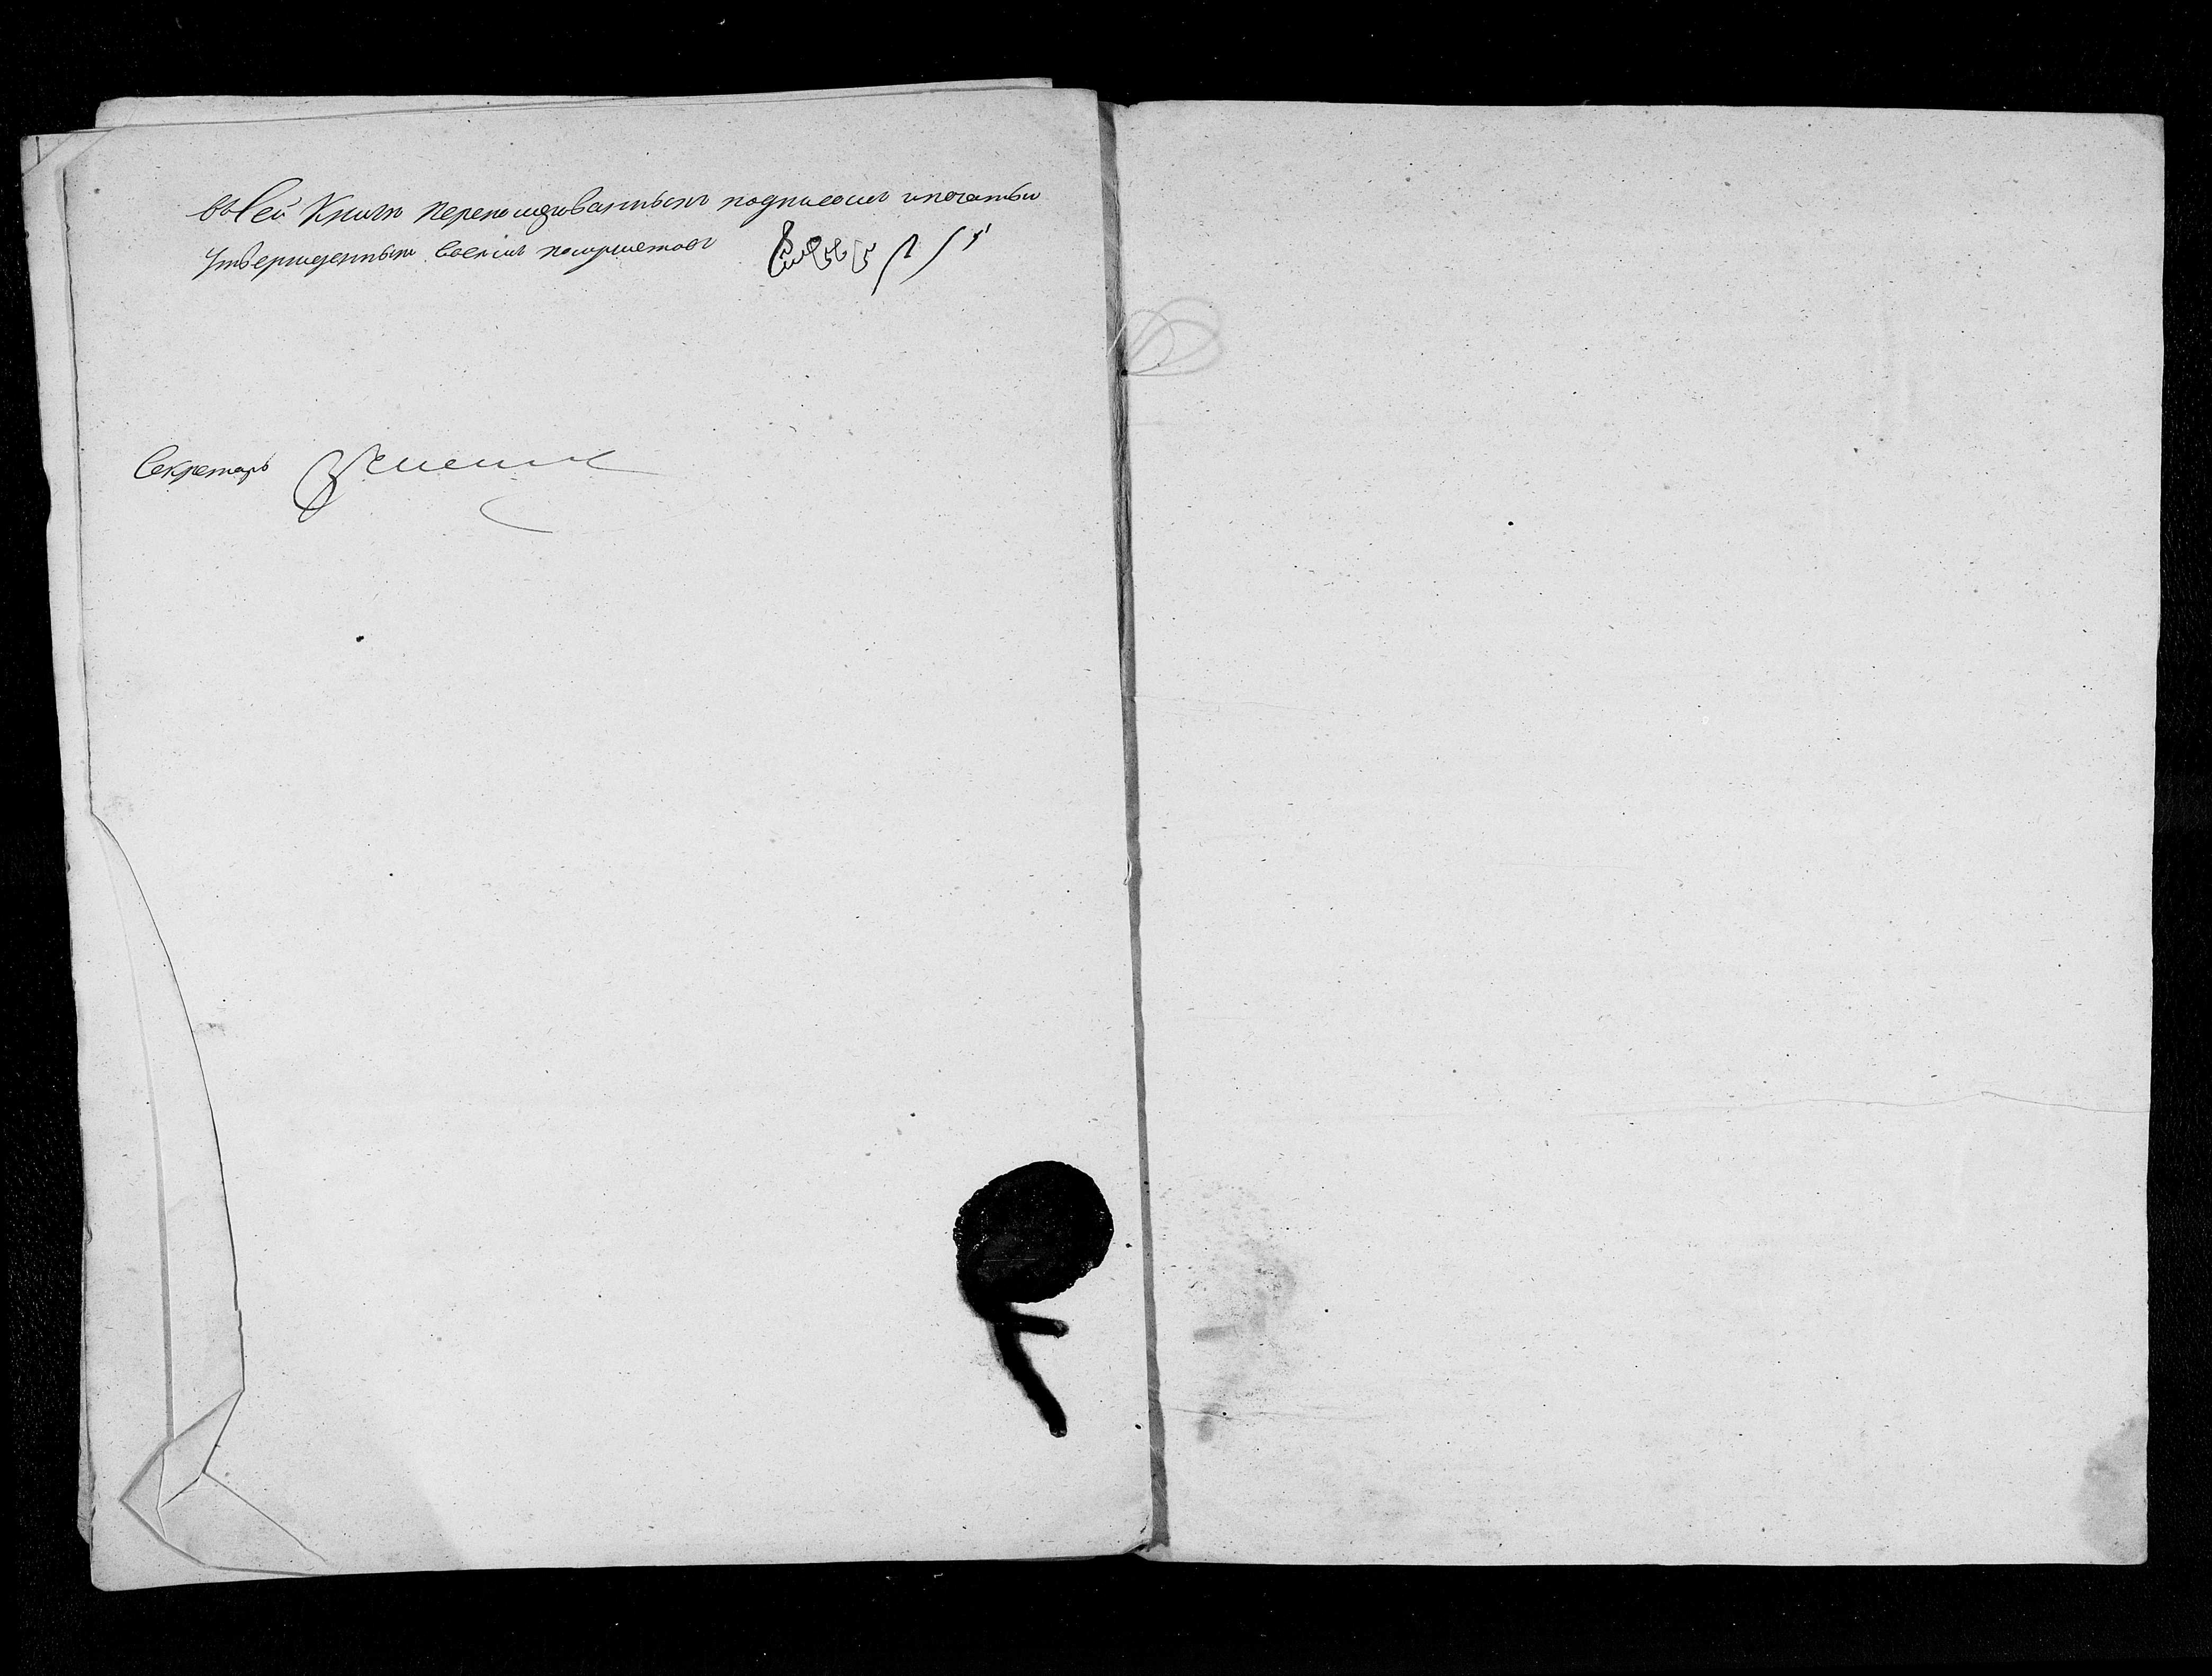 въ Сей Книгѣ перенумерованныхъ подписомъ и печатью
утвержденныхъ восемь полулистовъ
Секретарь